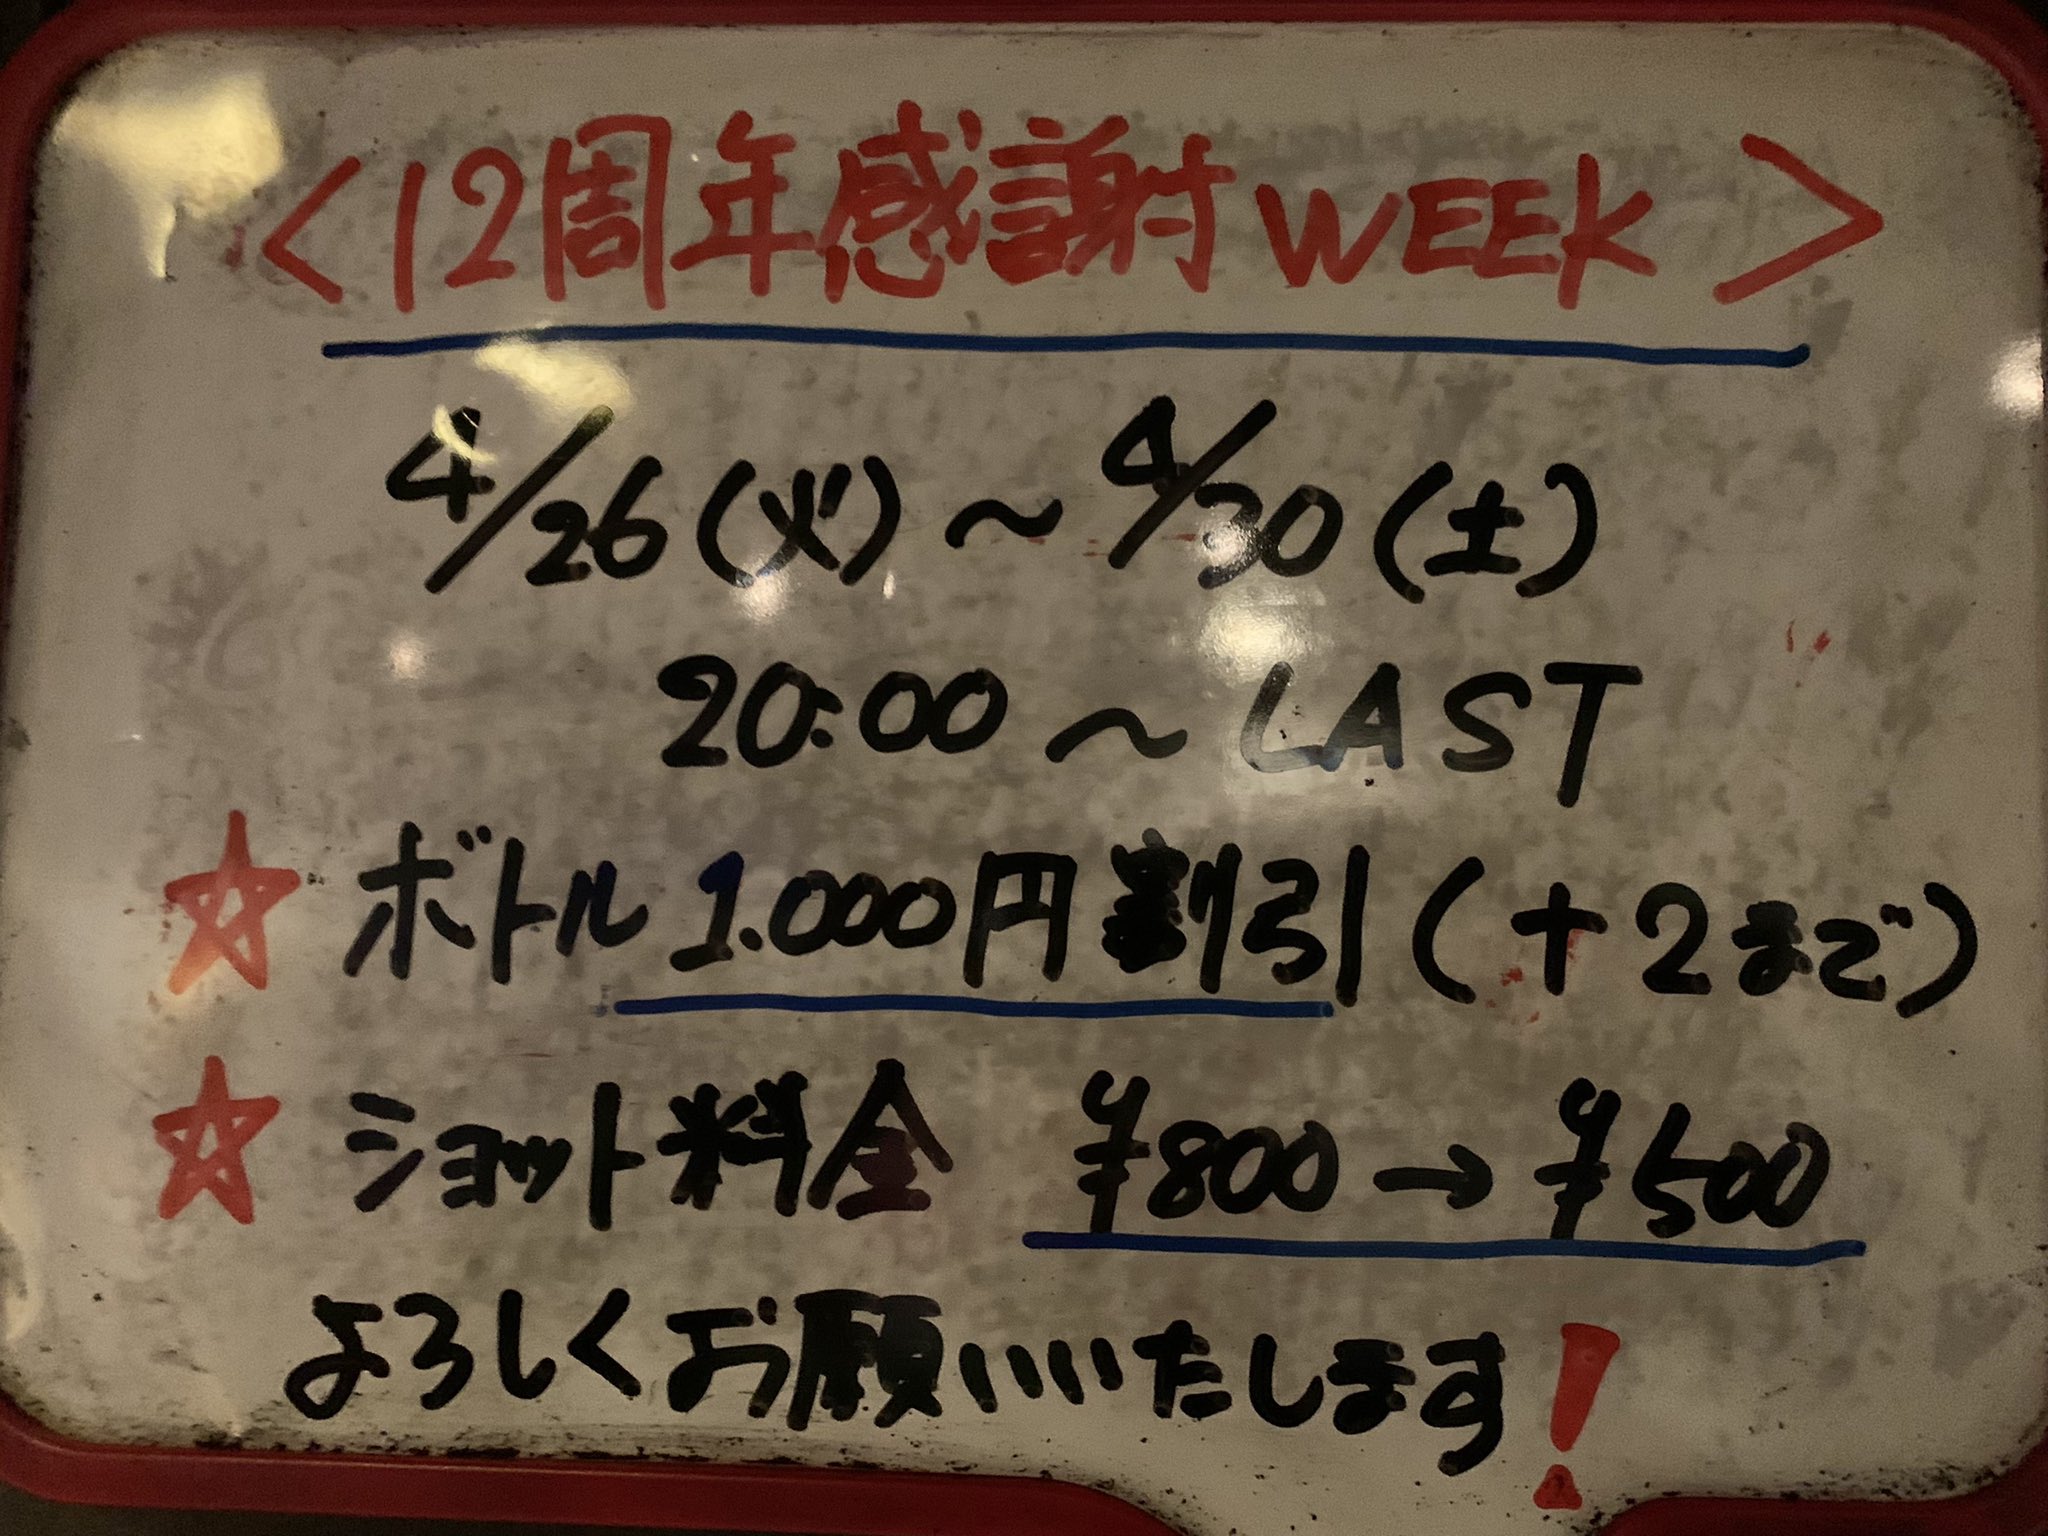 <12周年感謝WEEK>
4/26(火)～4/30(土)
20:00～LAST
☆ボトル1.000円割引(+2まで)
☆ショット料金 ¥800→¥500
よろしくお願いいたします!